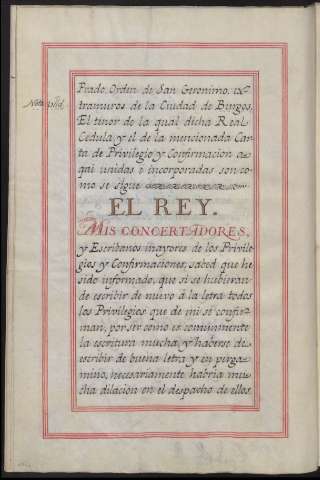 Prado, Orden de San Geronimo, ex-
tramuros de la Ciudad de Burgos.
El tenor de la qual dicha Real
Cedula y el de la mencionada Car-
ta de Privilegio y Confirmacion a-
qui unidas e incorporadas son co-
mo se sigue
EL REY.
MIS CONCERTADORES,
y Escribanos mayores de los Privile-
gios y Confirmaciones, sabed que he
sido informado, que si se hubieran
de escribir de nuevo á la letra todos
los Privilegios que de mi se confir-
man, por ser como es comunmente
la escritura mucha, y haberse de
escribir de buena letra y en perga-
mino, necesariamente habria mu-
cha dilacion en el despacho de ellos